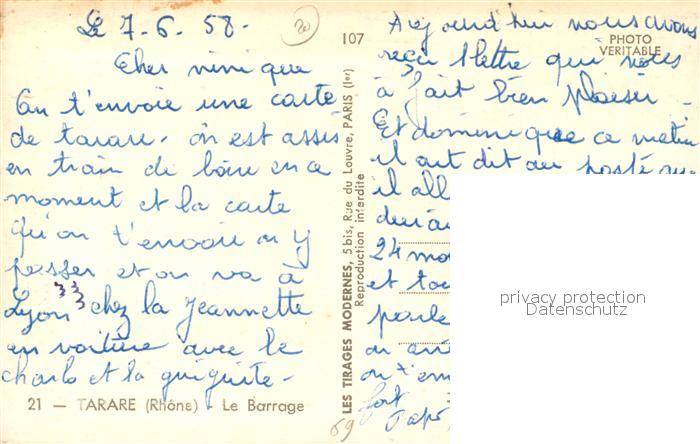 Le 7.6.58.
Cher ninique
On t'envoie une carte
de tarare. on est assis
en train de boire en ce
moment et la carte
qu'on t'envoie on y
passer et on va à
Lyon chez la jeannette
en voiture avec le
charlo et la guiguite -
21 - TARARE (Rhône) - Le Barrage
107
LES TIRAGES MODERNES, 5 bis, Rue du Louvre, PARIS (Ier)
Reproduction interdite
PHOTO
VERITABLE
Aujourd'hui nous avons
reçu lettre qui nous
à fait bien plaisir -
Et dominique ce matin
il dit au
il
24
et
parle
on
on t'em
fort
Papa
69
20
privacy protection
Datenschutz